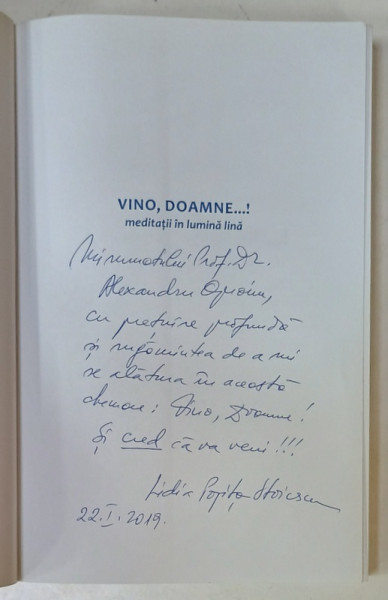 VINO, DOAMNE...!
meditații în lumină lină
Minunatului Prof. Dr.
Alexandru Oproiu,
cu prețuire profundă
și rugămintea de a mi
se alătura în această
chemare: Vino, Doamne!
Și cred că va veni!!!
Lidia Popița Stoicescu
22.I.2019.